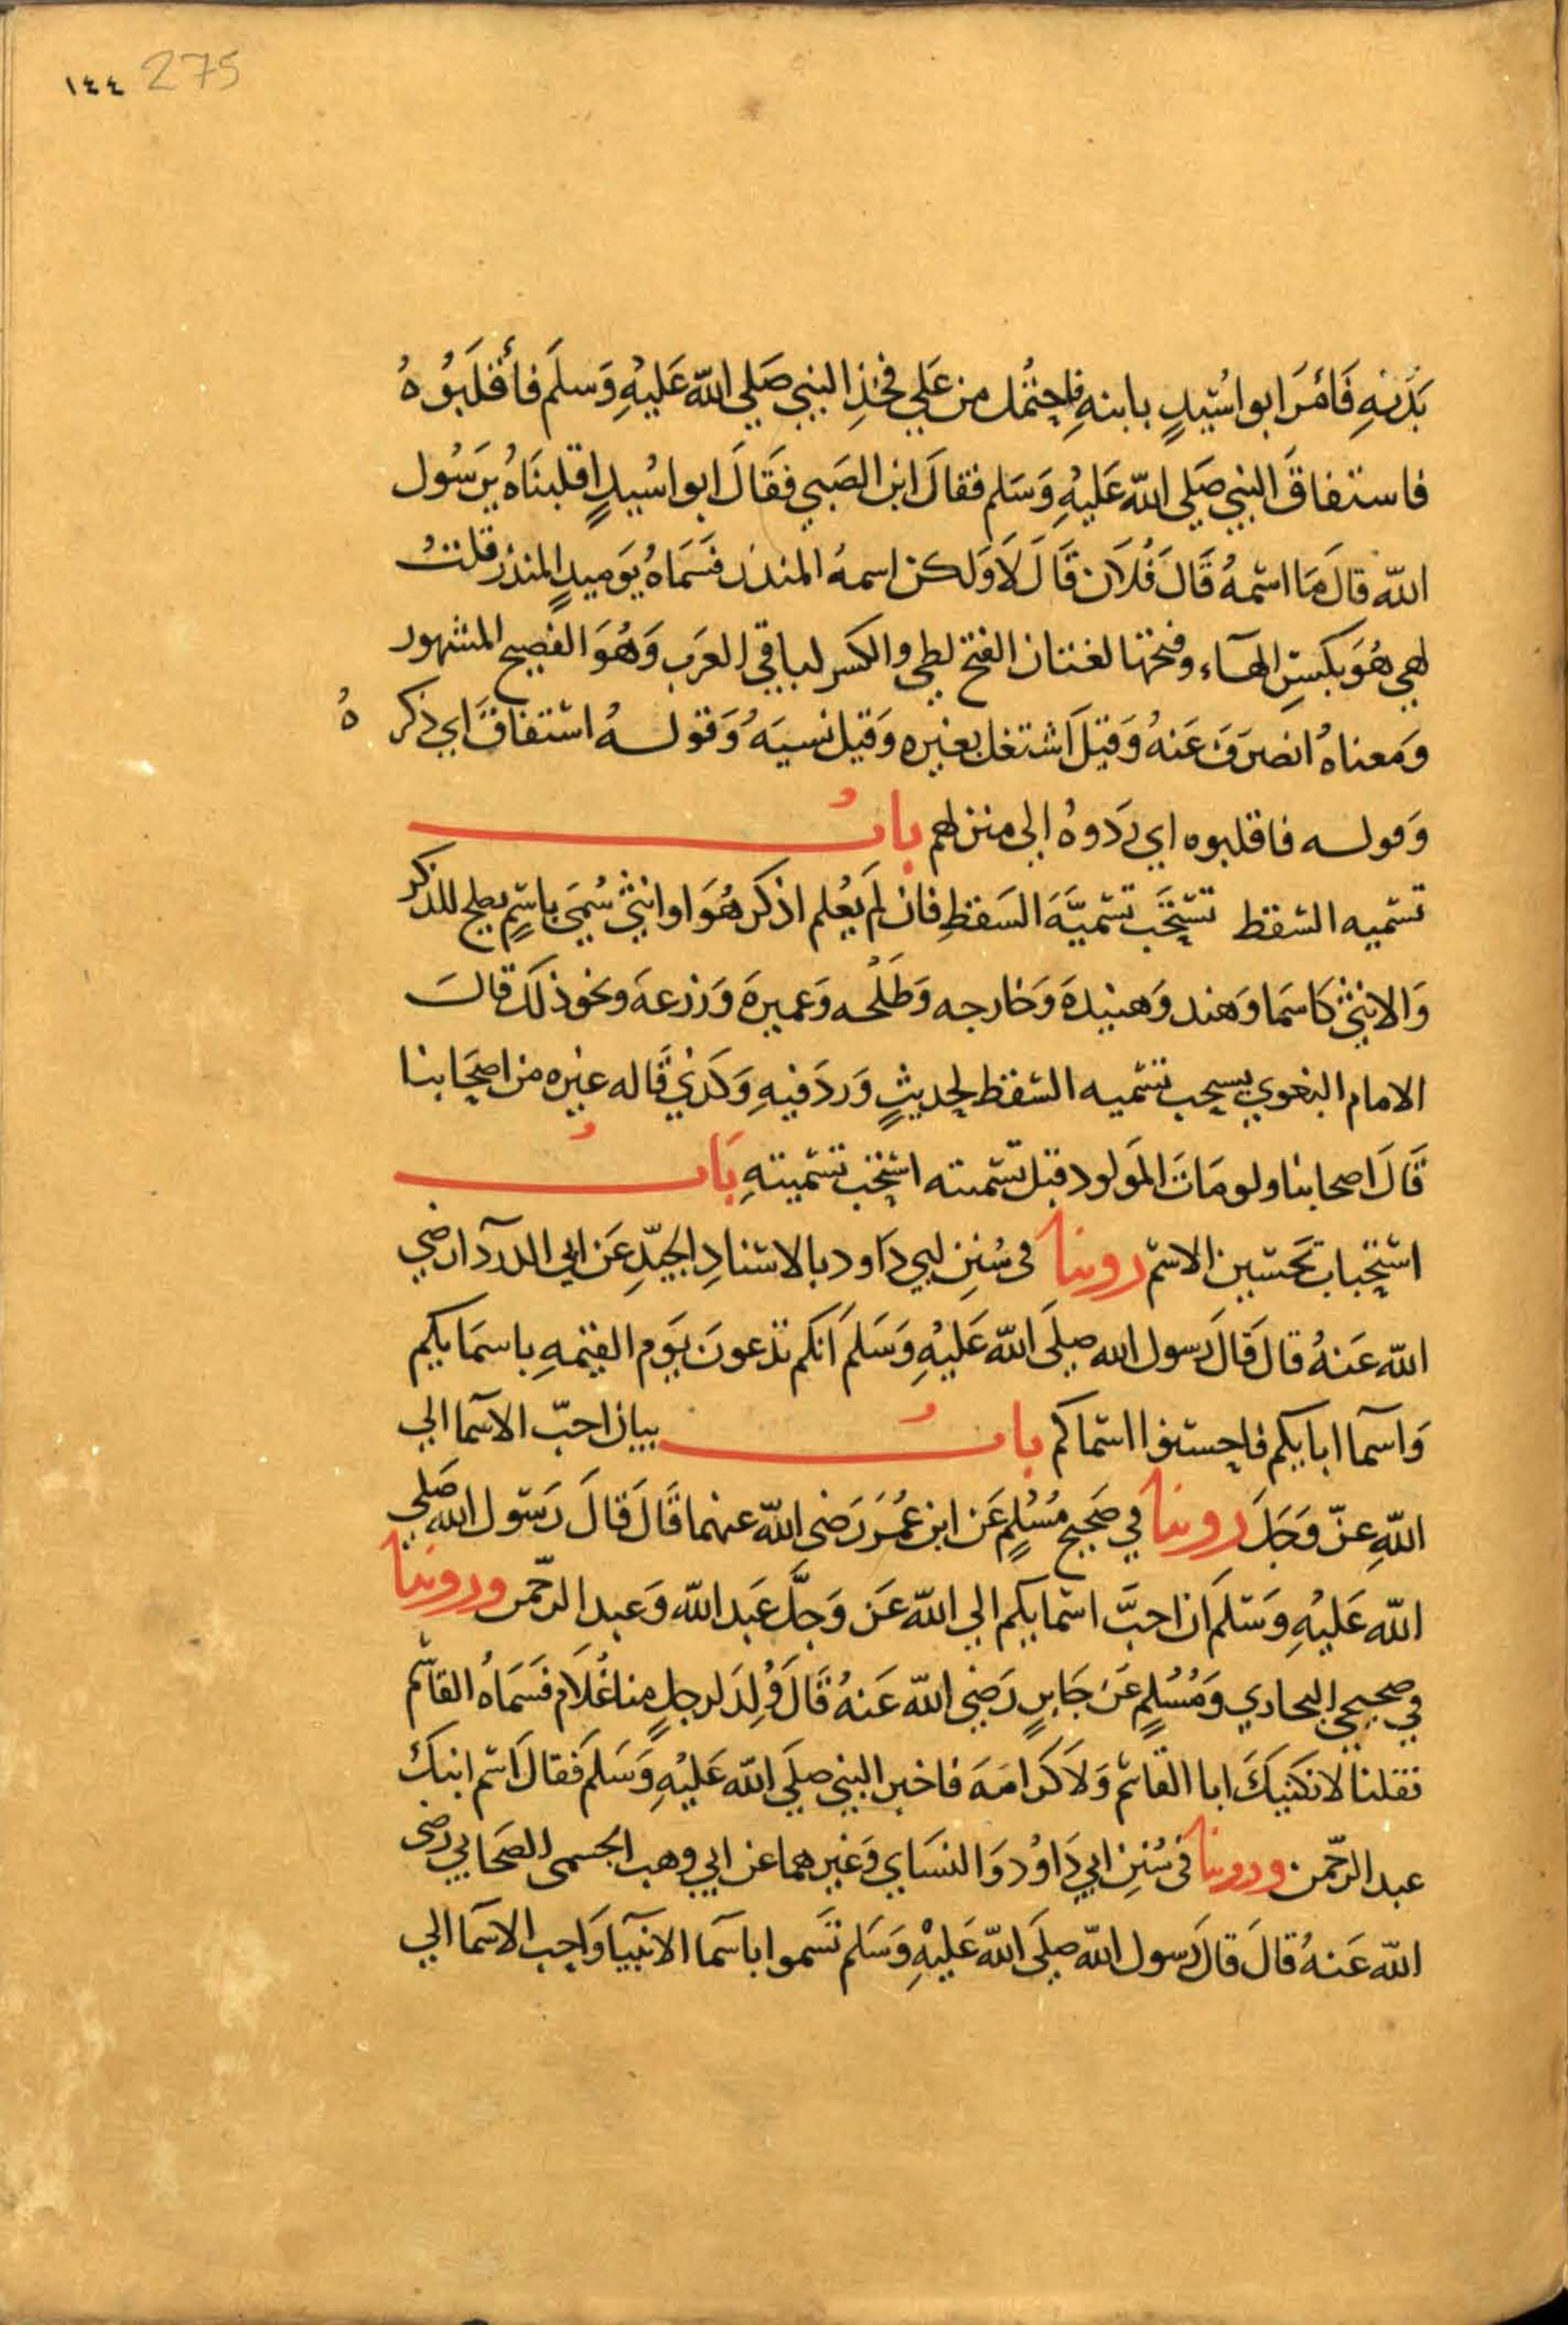 ١٤٤ 275
يَدَيْهِ فَأمَرَ ابو اسَيدٍ بابنهِ فاحتُمل من عَلي فخذِ النبي صَلي الله عَليْهِ وَسلمَ فأقلَبوُهُ
فاستفاقَ النبي صَلي الله عَليْهِ وَسَلم فقالَ اين الصَبي فَقَالَ ابو اسُيدٍ اقلبنَاهُ يرَسُول
الله قالَ مَا اسمهُ قَالَ فُلَان قَالَ لَا وَلكن اسمهُ المنذر فَسَمَاهُ يَوميدٍ المنذر قلت
لهي هُوَ بكسِر الهآء وفتحها لغتان الفتح لطي والكسر لباقي العَرَب وَهُوَ الفصيح المشهور
وَمَعناهُ انصرَفَ عَنهُ وَقيلَ اشتغل بغيره وَقيل نسيَهُ وَقولهُ استفاقَ اي ذكر هُ
وَقوله فاقلبوه اي رَدَوهُ الى منزلهم بابُ
تسميه السقط تستحَب تسميَّةَ السَقطِ فان لَم يعُلم اذكَر هُوَ او انثي سُميَ باسمٍ يصلح للذكر
وَالانثى كَاسمَا وَهند وَهنيدهَ وَخارجه وَطَلْحه وَعميرهَ وَزرعهَ ونحَو ذلَك قالَ
الامام البغوي يستحب تسميه السقط لحديثٍ وَردَ فيهِ وَكَذي قَاله غيره من اصحَابنا
قَالَ اصحابنا ولو مَاتَ المَولود قبل تسَميته استحب تسميتهِ بَابُ
استحباب تحَسين الاسم روينا فى سُنِن ابي دَاود بالاسنادِ الجيّدِ عَن ابي الدردآ رضي
الله عَنهُ قالَ قَالَ رَسول الله صلَي الله عَليْهِ وَسَلمَ انكم تدعونَ يَوَم القيمهِ باسمَايكم
وَاسمآ ابايكم فاحسنوا اسماكم بابُ بيان احبّ الاسمآ الي
اللهِ عزّ وَجَلَ روينا في صَحيح مُسْلمٍ عَن ابن عمُرَ رَضى الله عنهما قَالَ قَالَ رَسَول الله صَلي
الله عَليْهِ وَسَلمَ ان احبَّ اسمايكم الي الله عَز وَجلَّ عَبد الله وَعبد الرحّمن وروينا
في صحيحي البخاري وَمُسْلمٍ عَن جَابرٍ رَضي الله عَنهُ قَالَ وُلِدَ لرجلٍ منا غُلَام فَسَمَاهُ القاسم
فقلنا لا نكنيكَ ابا القاسم وَلَا كَرَامَهَ فاخبر النبي صلَي الله عَليْهِ وَسَلمَ فقالَ اسَم ابنكَ
عبد الرحّمن وروينا فى سُننِ ابي دَاوُد وَالنسَاي وَغيرهما عن ابي وهب الجسمى الصَحابي رضى
الله عَنهُ قالَ قالَ رَسول الله صلَي الله عَليْهِ وَسَلم تسَموا باسمَا الانبيآ وَاحب الاسمَا الي